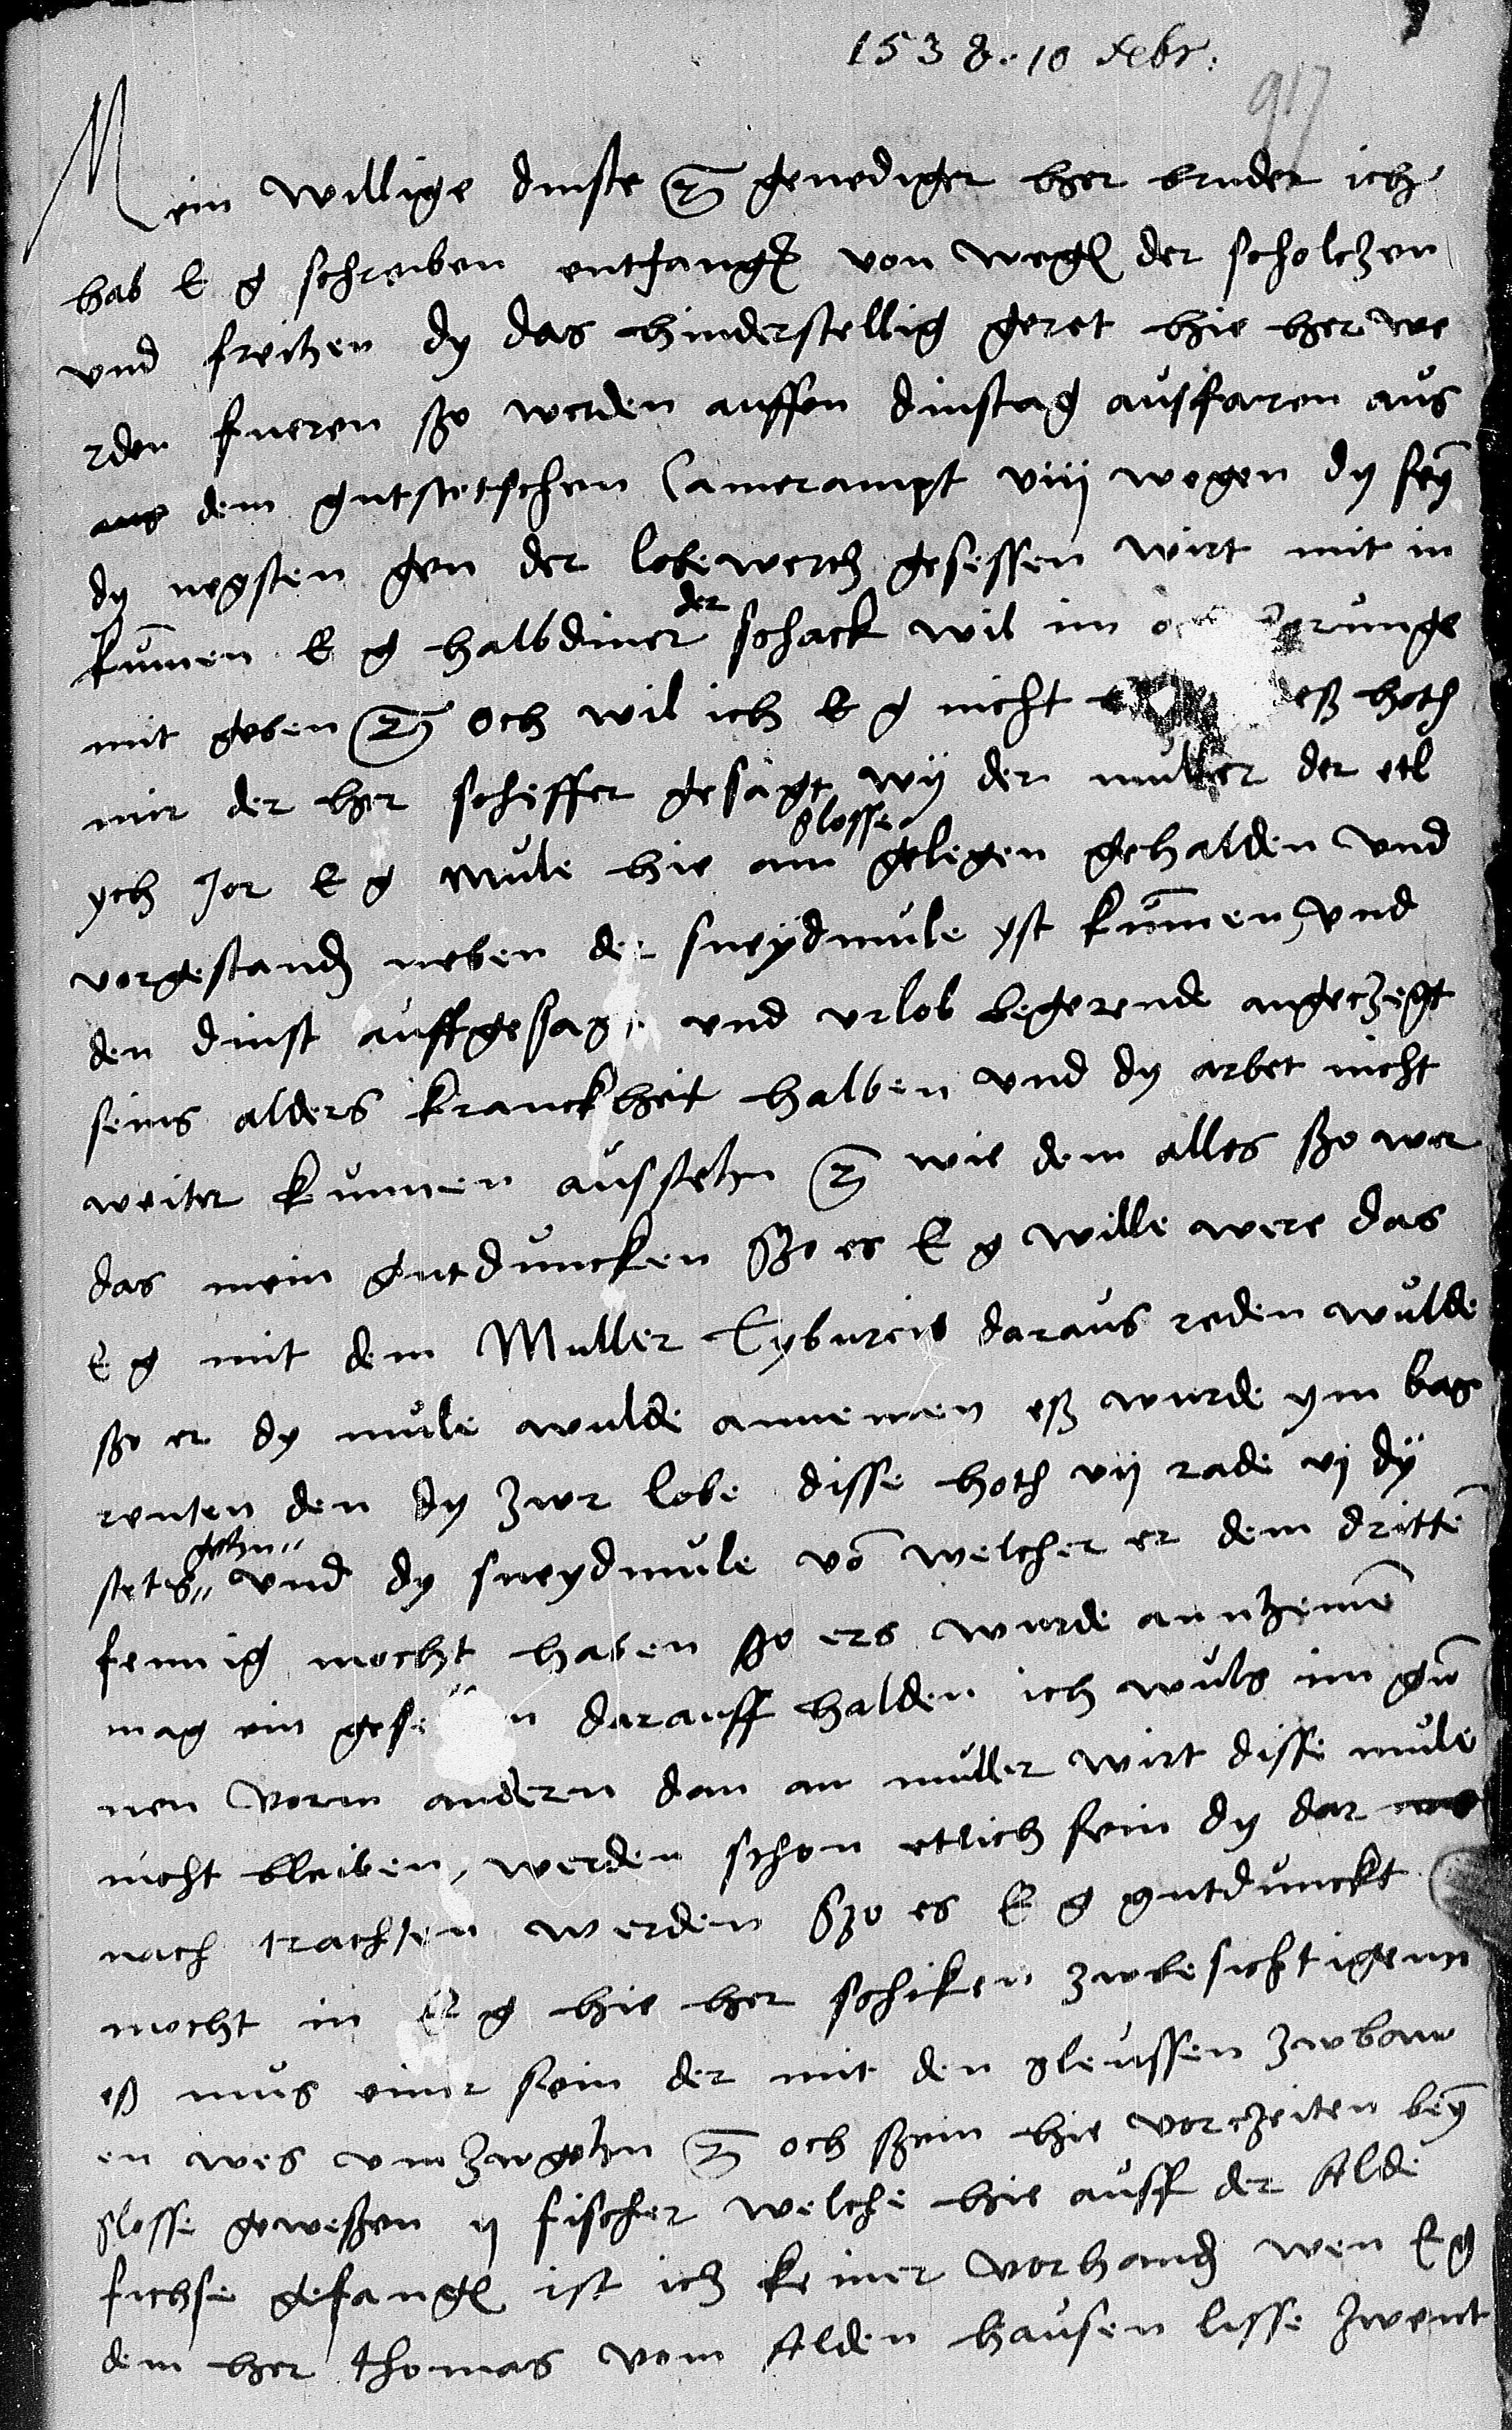 1538. 10 Febr:
917
Mein willige dinste etc genediger her bruder ich
hab E g schreiben entfangen von wegen der scholczen
vnd freihen dy das hinderstellig geret hie her we
rden fueren szo werden auffen dinstag ausfaren aus
dem gutstetschen Camerampt viij wogen dy sey
dy negsten gen der lobe werch gesessen wirt mit in
kumen E g halbdiner der schack wil im
mit geben etc Och wil ich E g nicht eß hoth
mir der her scheffer gesagt wy der muller der etl
ych Jor E g mule hie am slosse gelegen gehalden vnd
vorgestanden neben der sneydmule yst kumen vnd
den dinst auffgesagt vnd vrlob begerende angeczegt
seins alders kranckheit halben vnd dy arbet nicht
weiter kunnen ausstehn etc wie dem alles szo wer
das mein gutduncken szo es E g wille were das
E g mit dem Muller Tyburcio daraus reden wulde
szo er dy mule wulde annemen eß wurde ym bas
renten den dy zwr lobe disse hoth vij rade vj dy
stets gehn vnd dy sneydmule von welcher er dem dritte
fennig mocht haben szo ers wurde annhemen
mag ein ges darauff halden ich wuls im gun
nen vorm andern dan an muller wirt disse mule
nicht bleiben, werden schon etlich sein dy dar
nach trachten werden Szo es E g gutdunckt
mocht in E g hie her schiken zwbesichtigenn
eß mus einer sein der mit den sleussen zwbaw
en wes vmzwgehn etc och szein hie vorczeiten bey
slosse geweszen ij fischer welche hie auff der Alde
fichse gefangen ist icz keiner vorhanden wen E g
dem her thomas vom Alden hausen lisse zwent